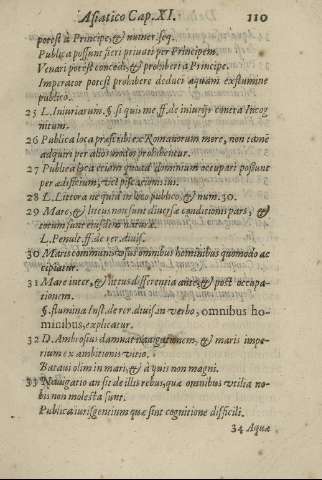 Asiatico Cap. XI. 110
potest à Principe, & numer. seq.
Publica possunt fieri privati per Principem.
Venari potest concedi, & prohiberi à Principe.
Imperator potest prohibere deduci aquam ex flumine
publico.
25 L. Iniuriarum. § si quis me, ff. de iniurijs contra Incog
nitum.
26 Publica loca præscribi ex Romanorum more, non tamē
adquiri per aliorum loc prohibentur.
27 Publica loca etiam quoad dominium occupari possunt
per ædificium, vel piscationem.
28 L. Littora ne quid in loco publico, & num. 30.
29 Mare, & littus non sunt diversæ conditionis pars, &
eorum sunt eiusdem naturæ.
L. Penult. ff. de rer. divis.
30 Maris communis usus omnibus hominibus quomodo ac
cipiatur.
31 Mare inter, & littus differentia ante, & post occupa-
tionem.
§. flumina Inst. de rer. divis. in verbo, omnibus ho-
minibus, explicatur.
32 D. Ambrosius damnat navigationem, & maris impe-
rium ex ambitionis vitio.
Batavi olim in mari, & à quis non magni.
33 Navigatio an sit de illis rebus, quæ omnibus utilia no-
bis non molesta sunt.
Publica iuris gentium quæ sint cognitione difficili.
34 Aquæ